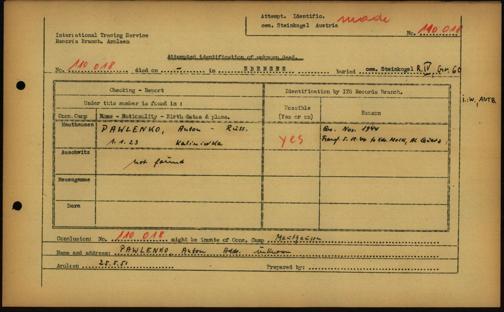 Attempt. Identific.
cem. Steinkogel Austria
made
No. 110 018
International Tracing Service
Records Branch. Arolsen
Attempted identification of unknown dead.
No. 110 018 died on - in EBENSEE buried cem. Steinkogel R IV Gr. 60
i.w. AUTB
Checking - Report
Identification by ITS Records Branch.
Under this number is found in :
Possible
(Yes or no)
Reason
Conc. Camp
Name - Nationality - Birth dates & place.
Mauthausen
PAWLENKO, Anton - Russ.
1.1.23 Kaliniwka
yes
Nov. 1944
Transf. 5.11.44 to
Auschwitz
not found
Neuengamme
Dora
Conclusion: No. 110 018 might be inmate of Conc. Camp Mauthausen
Name and address: PAWLENKO, Anton Add. unknown
Arolsen 25.5.51 Prepared by: